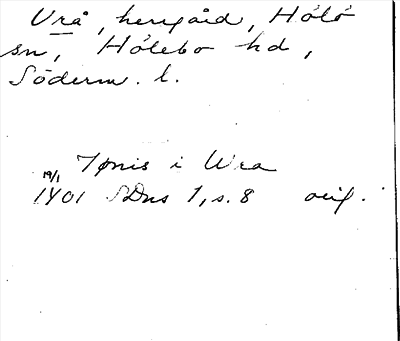 Vrå, herrgård, Hölö
sn, Hölebo hd,
Söderm. l.
Tønis i Wra
19/1
1401 SDns 1, s. 8 orig.